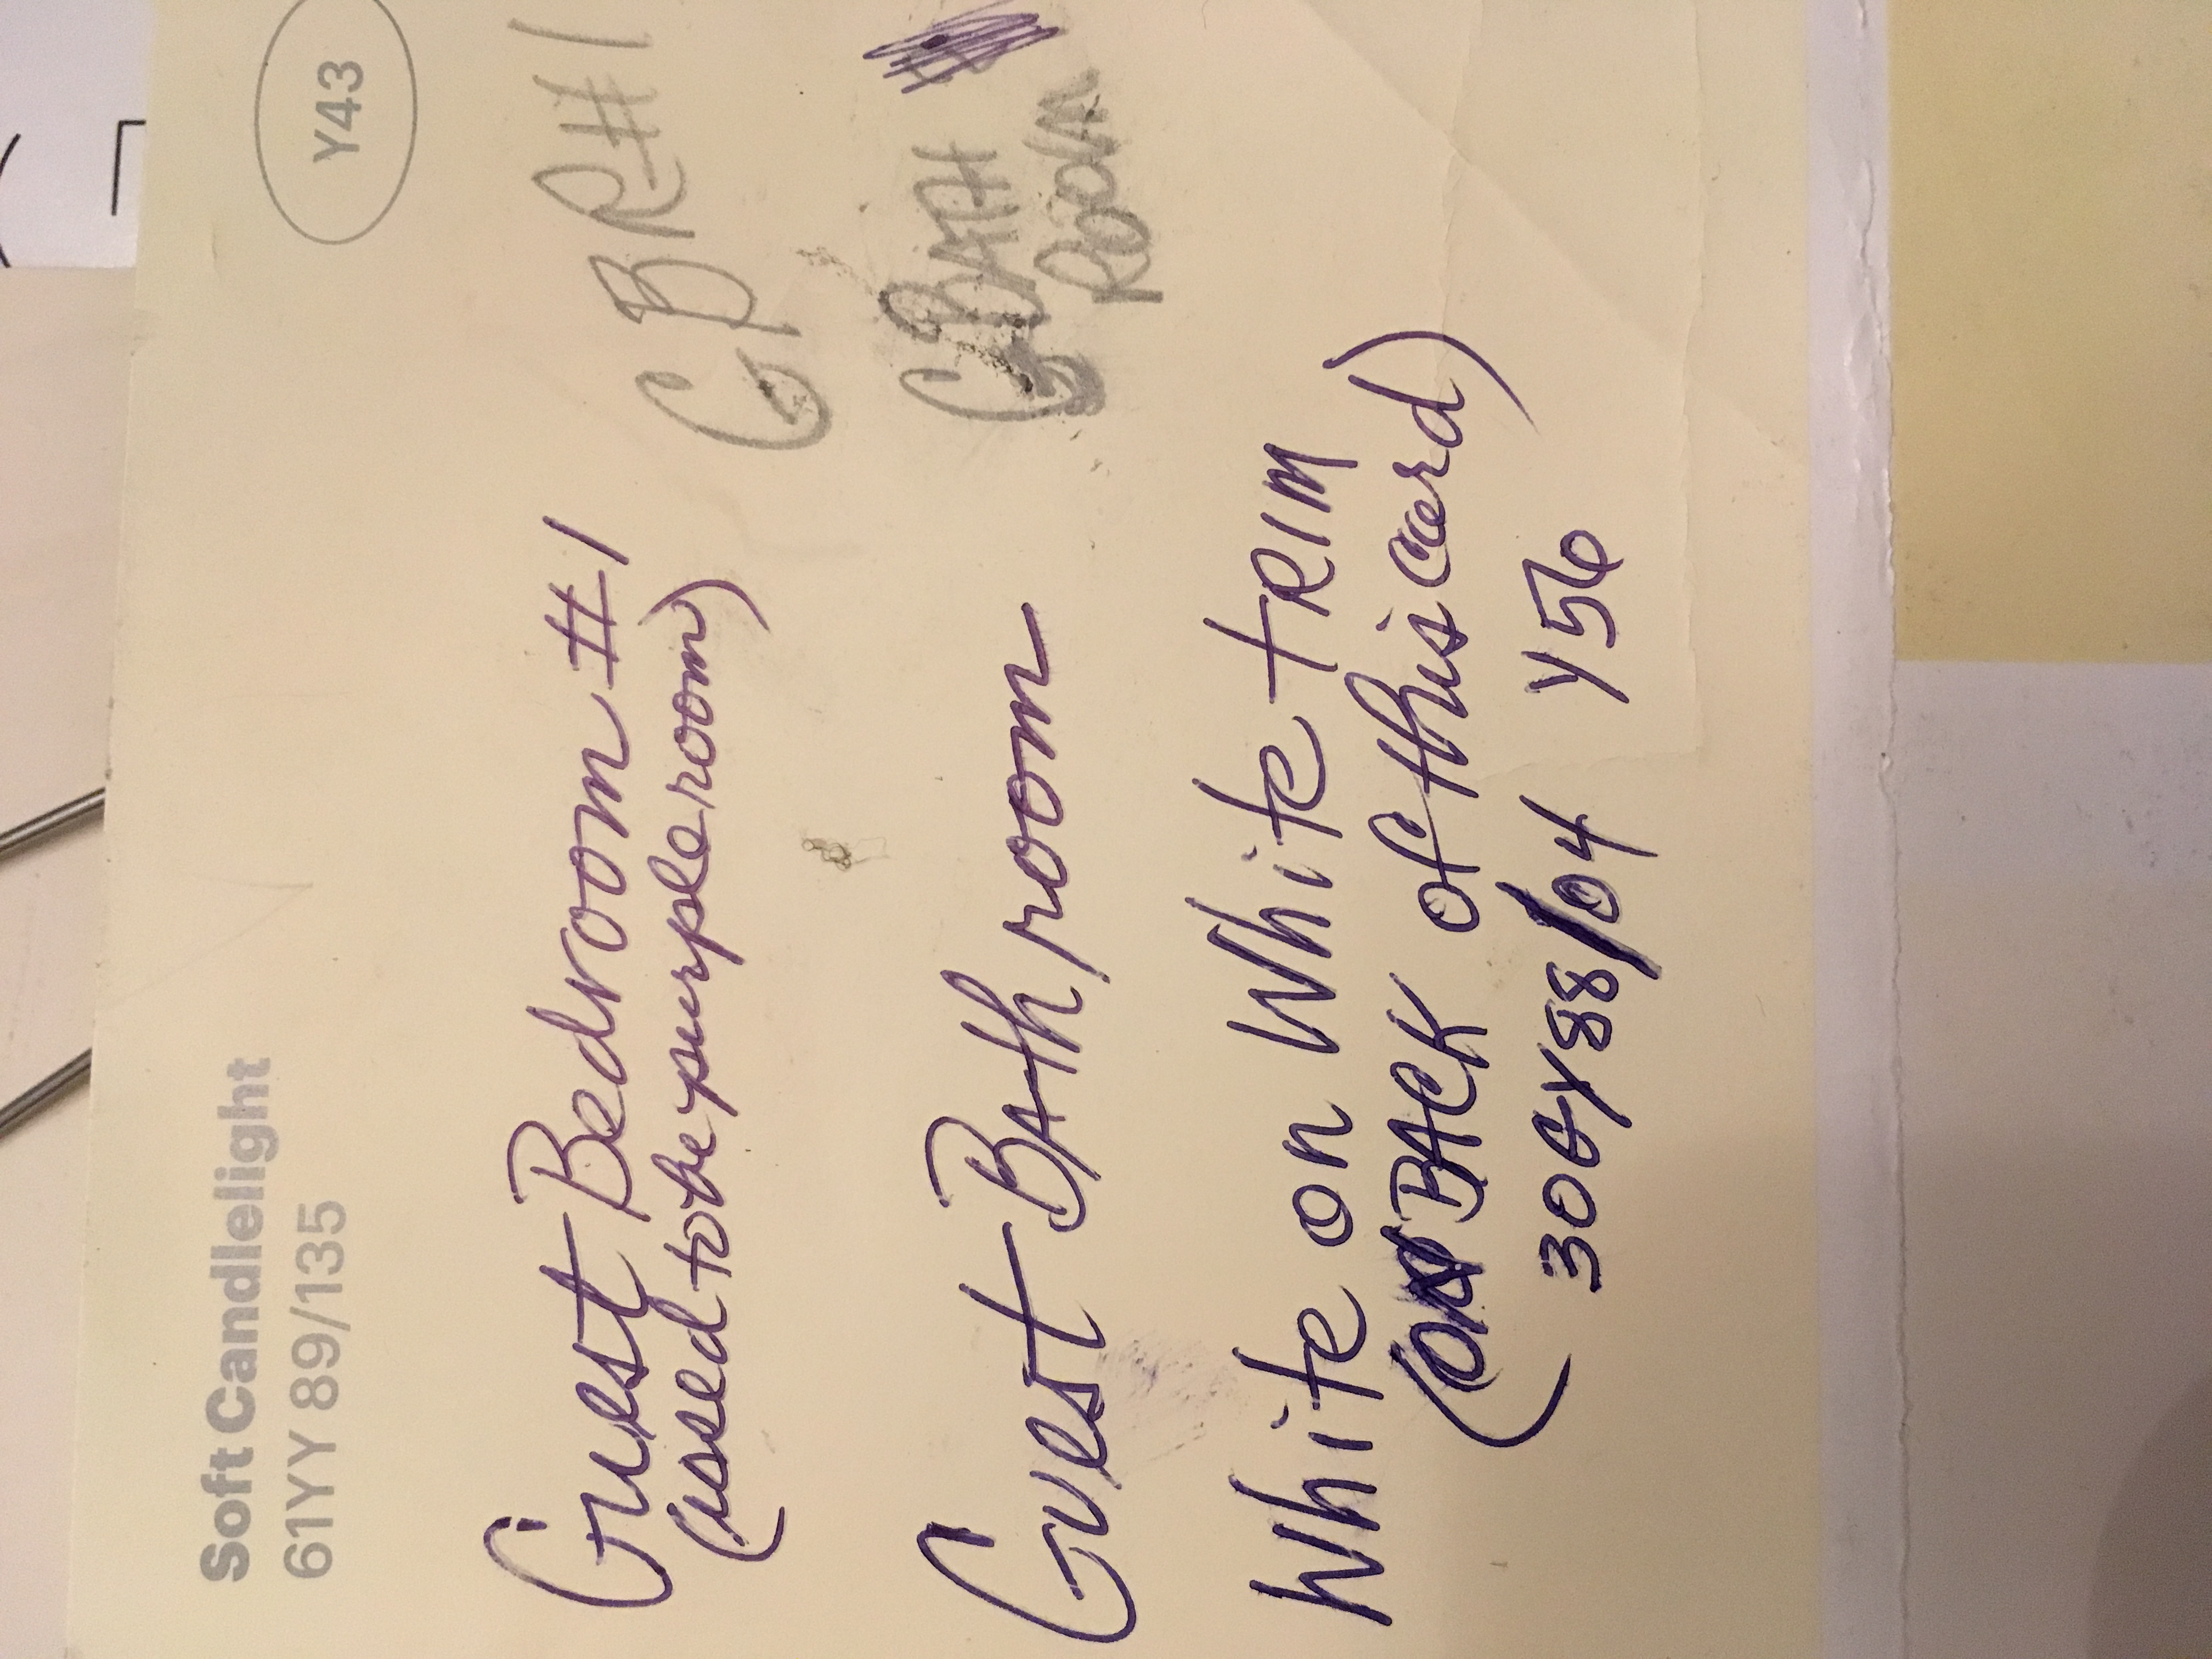 Soft Candlelight
61YY 89/135
Y43
Guest Bedroom #1
(used to be purple room)
G BR #1
Guest BAthroom
G BATH
ROOM
White on White tRIM
(ON BACK of this card)
30GY88/04 Y56